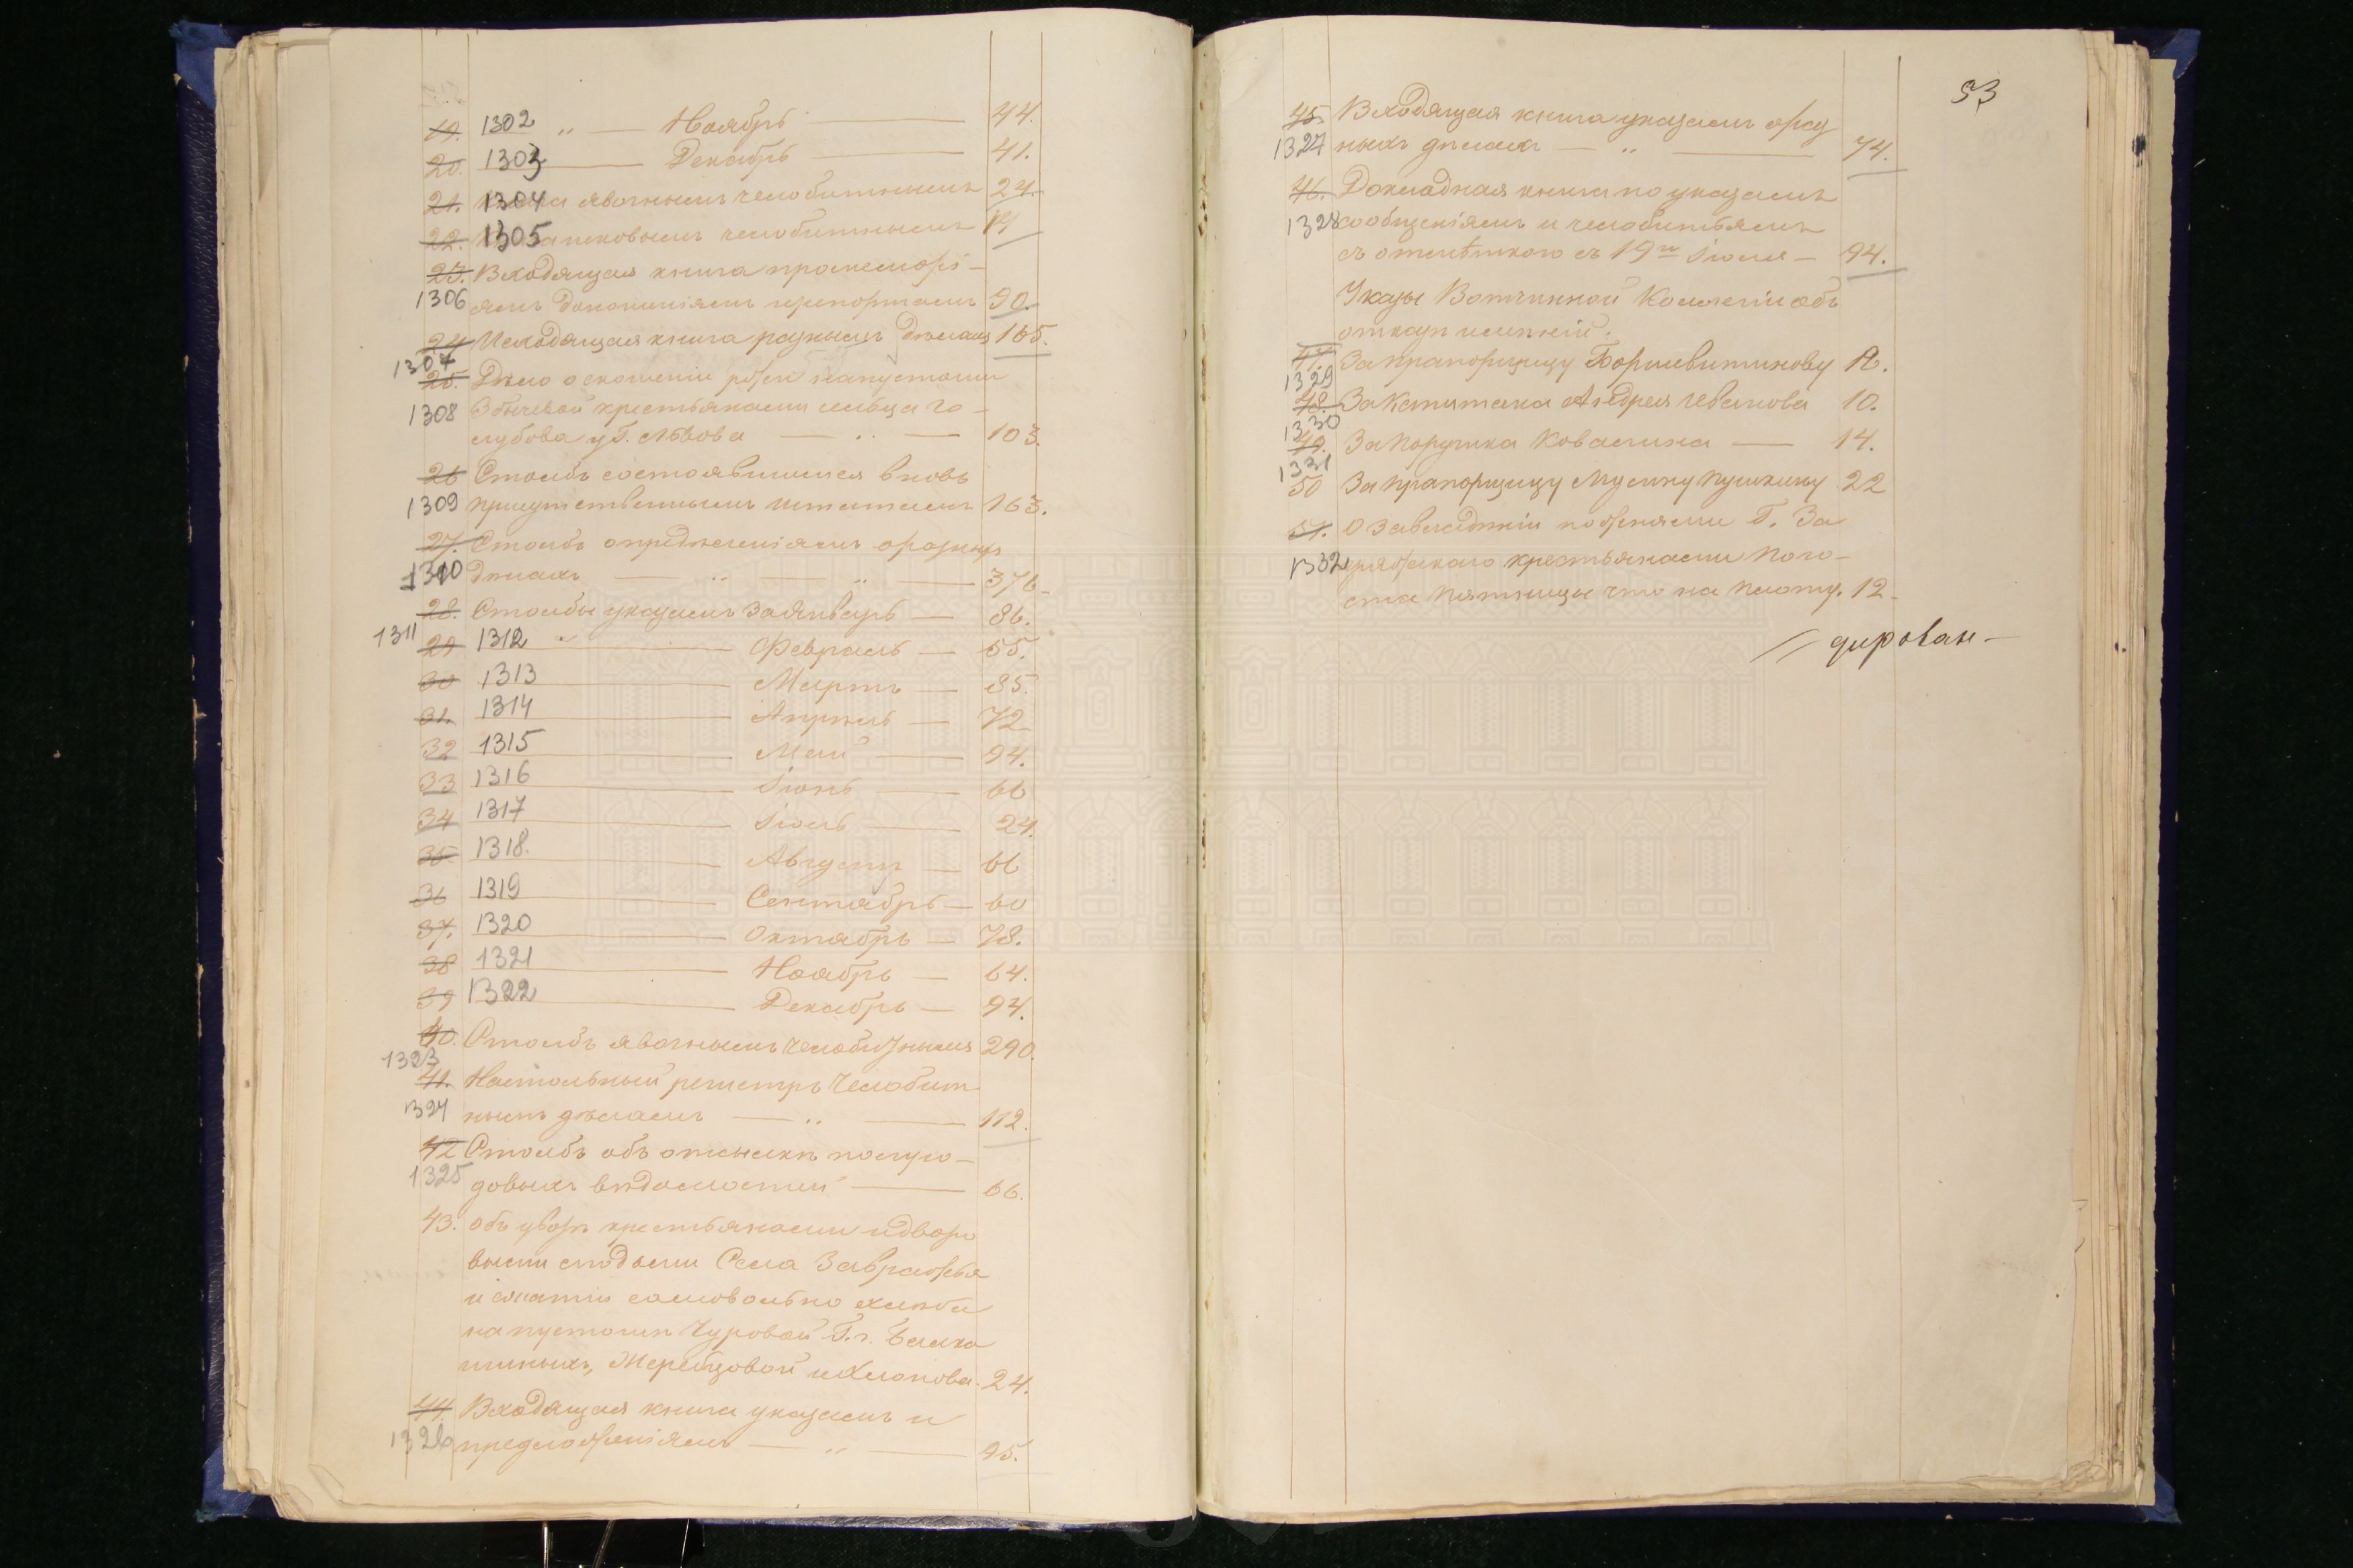 19. 1302 " — Ноябрь — 44.
20. 1303 — Декабрь — 41.
21. 1304 явочнымъ челобитнымъ 24.
22. 1305 исковымъ челобитнымъ
23. Входящая книга промеморі-
1306 ямъ доношеніямъ и репортамъ 90.
24 Исходящая книга разнымъ дѣламъ 165.
1307
25. Дѣло о скошеніи ржи на пустоши
1308 крестьянами сельца Го-
лубова уг. Львова — " — 103.
26 Столбъ состоявшимся вновь
1309 присутственнымъ штатамъ 163.
27. Столбъ опредѣленіямъ о разныхъ
1310 дѣлахъ — " — " — 376
28. Столбы указамъ за Январь — 86.
1311
29 1312 " — Февраль — 55.
30 1313 — Мартъ — 85.
31. 1314 — Апрѣль — 72
32 1315 — Май — 94.
33 1316 — Іюнь — 66
34 1317 — Іюль — 24.
35 1318. — Августъ — 66
36 1319 — Сентябрь — 60
37. 1320 — Октябрь — 78.
38 1321 — Ноябрь — 64.
39 1322 — Декабрь — 94.
40. Столбъ явочнымъ челобитнымъ 290.
1323
41. Настольный регистръ челобит
1324 нымъ дѣламъ — " — 112.
42 Столбъ объ отсылкѣ полуго-
1325 довыхъ вѣдомостей — 66.
43. объ увозѣ крестьянами и дворо
выми людьми Села Завражья
и сжатіи самовольно хлѣба
на пустоши Чуровой Г.г.
Жеребцовой и Хлопова. 24.
44. Входящая книга указамъ и
1326 предложеніямъ — " — 95.
53
45. Входящая книга указамъ о раз
1327 ныхъ дѣлахъ — " — 74.
46. Докладная книга по указамъ
1328 сообщеніямъ и челобитьямъ
съ отмѣткою съ 19го Іюля — 94.
Указы Вотчинной Коллегіи объ
отказѣ имѣній.
47. За прапорщицу Борисевитинову
1329
48. За Капитана Андрея Иванова 10.
1330
49. За Поручика Ковалина — 14.
1331
50 За прапорщицу Мусину Пушкину 22
51. О завладѣніи пожнями Г. За
1332 крестьянами Пого-
ста Пятницы что на Плоту. 12